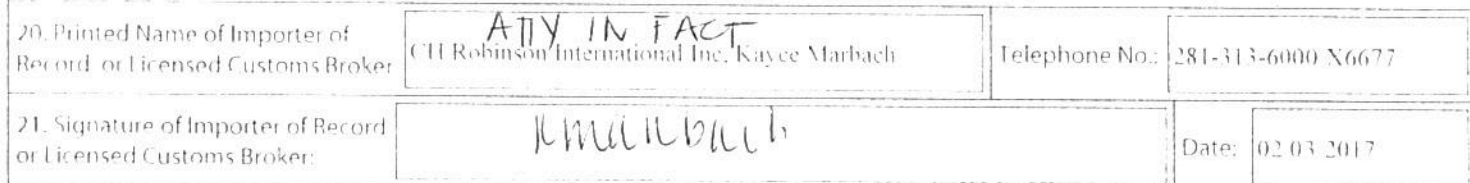 ATTY IN FACT
20. Printed Name of Importer of Record or Licensed Customs Broker
CH Robinson International Inc, Kaycee Marbach
Telephone No.: 281-313-6000 X6677
21. Signature of Importer of Record or Licensed Customs Broker:
KMarbach
Date: 02 03 2017